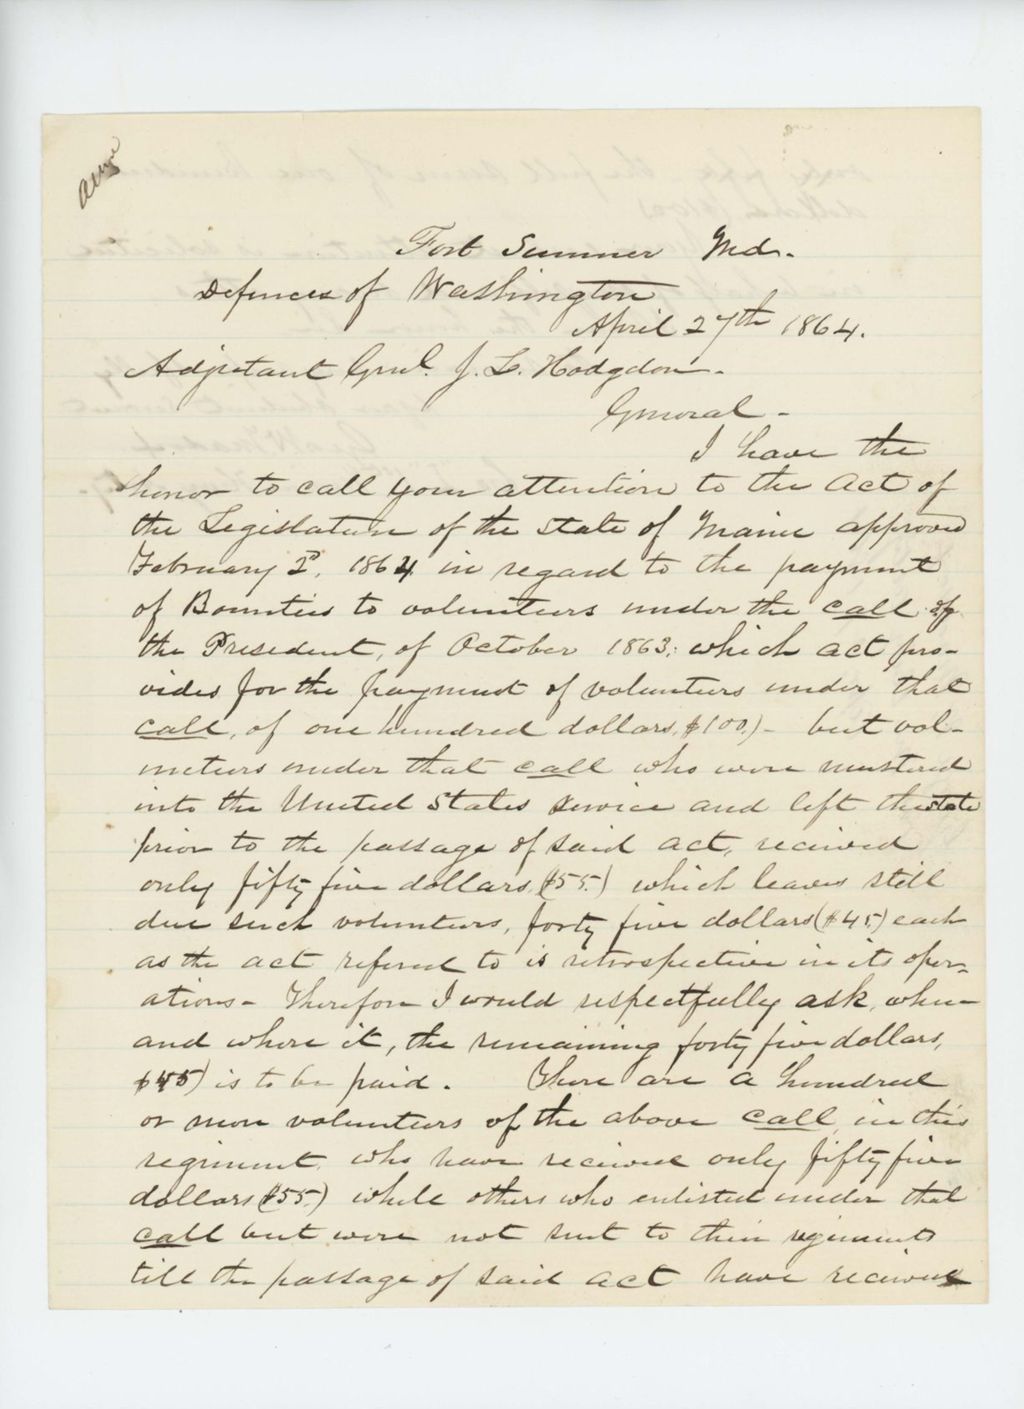 Fort Sumner Md.
Defences of Washington
April 27th 1864.
Adjutant Genl. J. L. Hodgdon.
General -
I have the
honor to call your attention to the Act of
the Legislature of the state of Maine approved
February 2d, 1864 in regard to the payment
of Bounties to volunteers under the call of
the President, of October 1863; which act pro-
vides for the payment of volunteers under that
call, of one hundred dollars, $100.) - but vol-
unteers under that call who were mustered
into the United States service and left the state
prior to the passage of said act, received
only fifty five dollars, ($55.) which leaves still
due such volunteers, forty five dollars ($45.) each
as the act refered to is retrospective in its oper-
ations - Therefore I would respectfully ask, when
and where it, the remaining forty five dollars,
$45) is to be paid. There are a hundred
or more volunteers of the above call, in this
regiment, who have received only fifty five
dollars ($55.) while others who enlisted under that
call but were not sent to their regiments
till the passage of said act have received